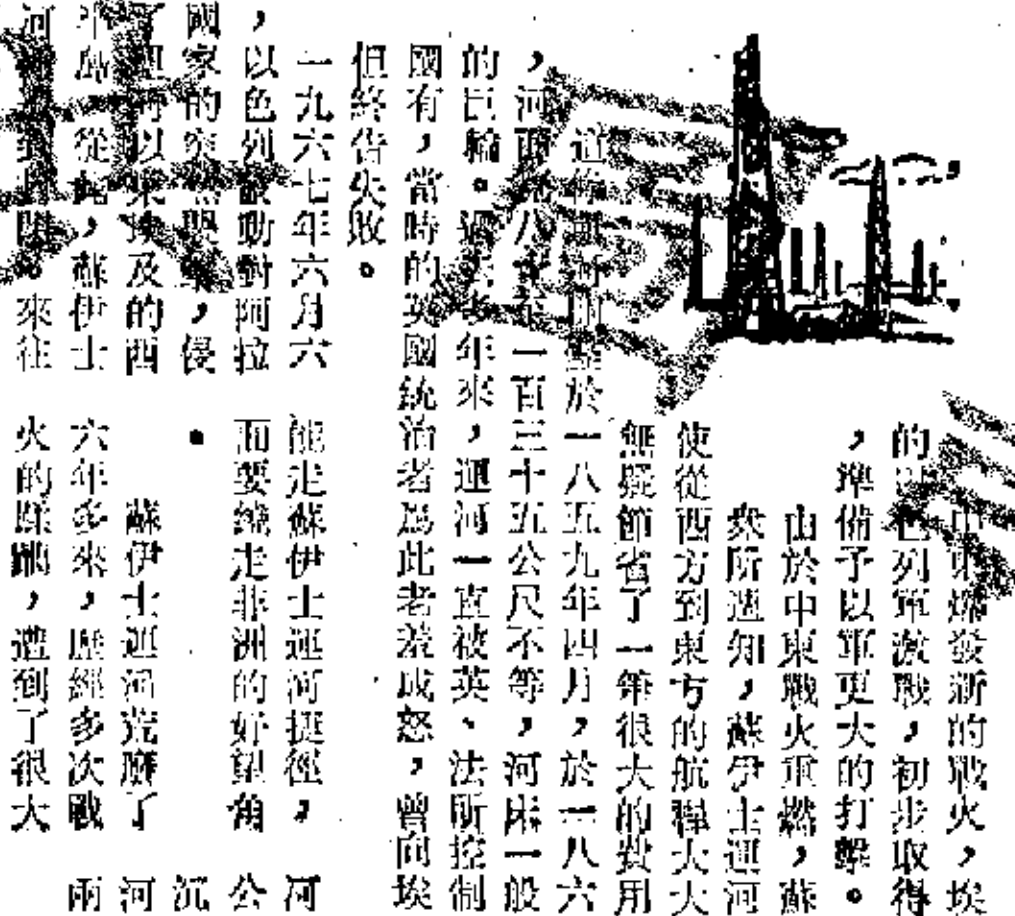 中東爆發新的戰火，埃
的以色列軍激戰，初步取得
，準備予以軍更大的打擊。
由於中東戰火重燃，蘇
衆所週知，蘇伊士運河
使從西方到東方的航程大大
無疑節省了一筆很大的費用
於一八五九年四月，於一八六
，河面八十至一百三十五公尺不等，河床一般
的巨輪。過去多年來，運河一直被英、法所控制
國有，當時的英國統治者爲此老羞成怒，曾向埃
但終告失敗。
一九六七年六月六
，以色列發動對阿拉
國家的突然襲擊，侵
以來埃及的西
半島，從此，蘇伊士
河 關閉。來往
能走蘇伊士運河捷徑，
而要繞走非洲的好望角
。
蘇伊士運河荒廢了
六年多來，歷經多次戰
火的蹂躪，遭到了很大
河
公
沉
河
兩